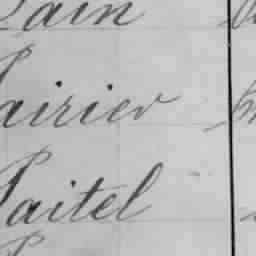 Pain
Pairier
Paitel